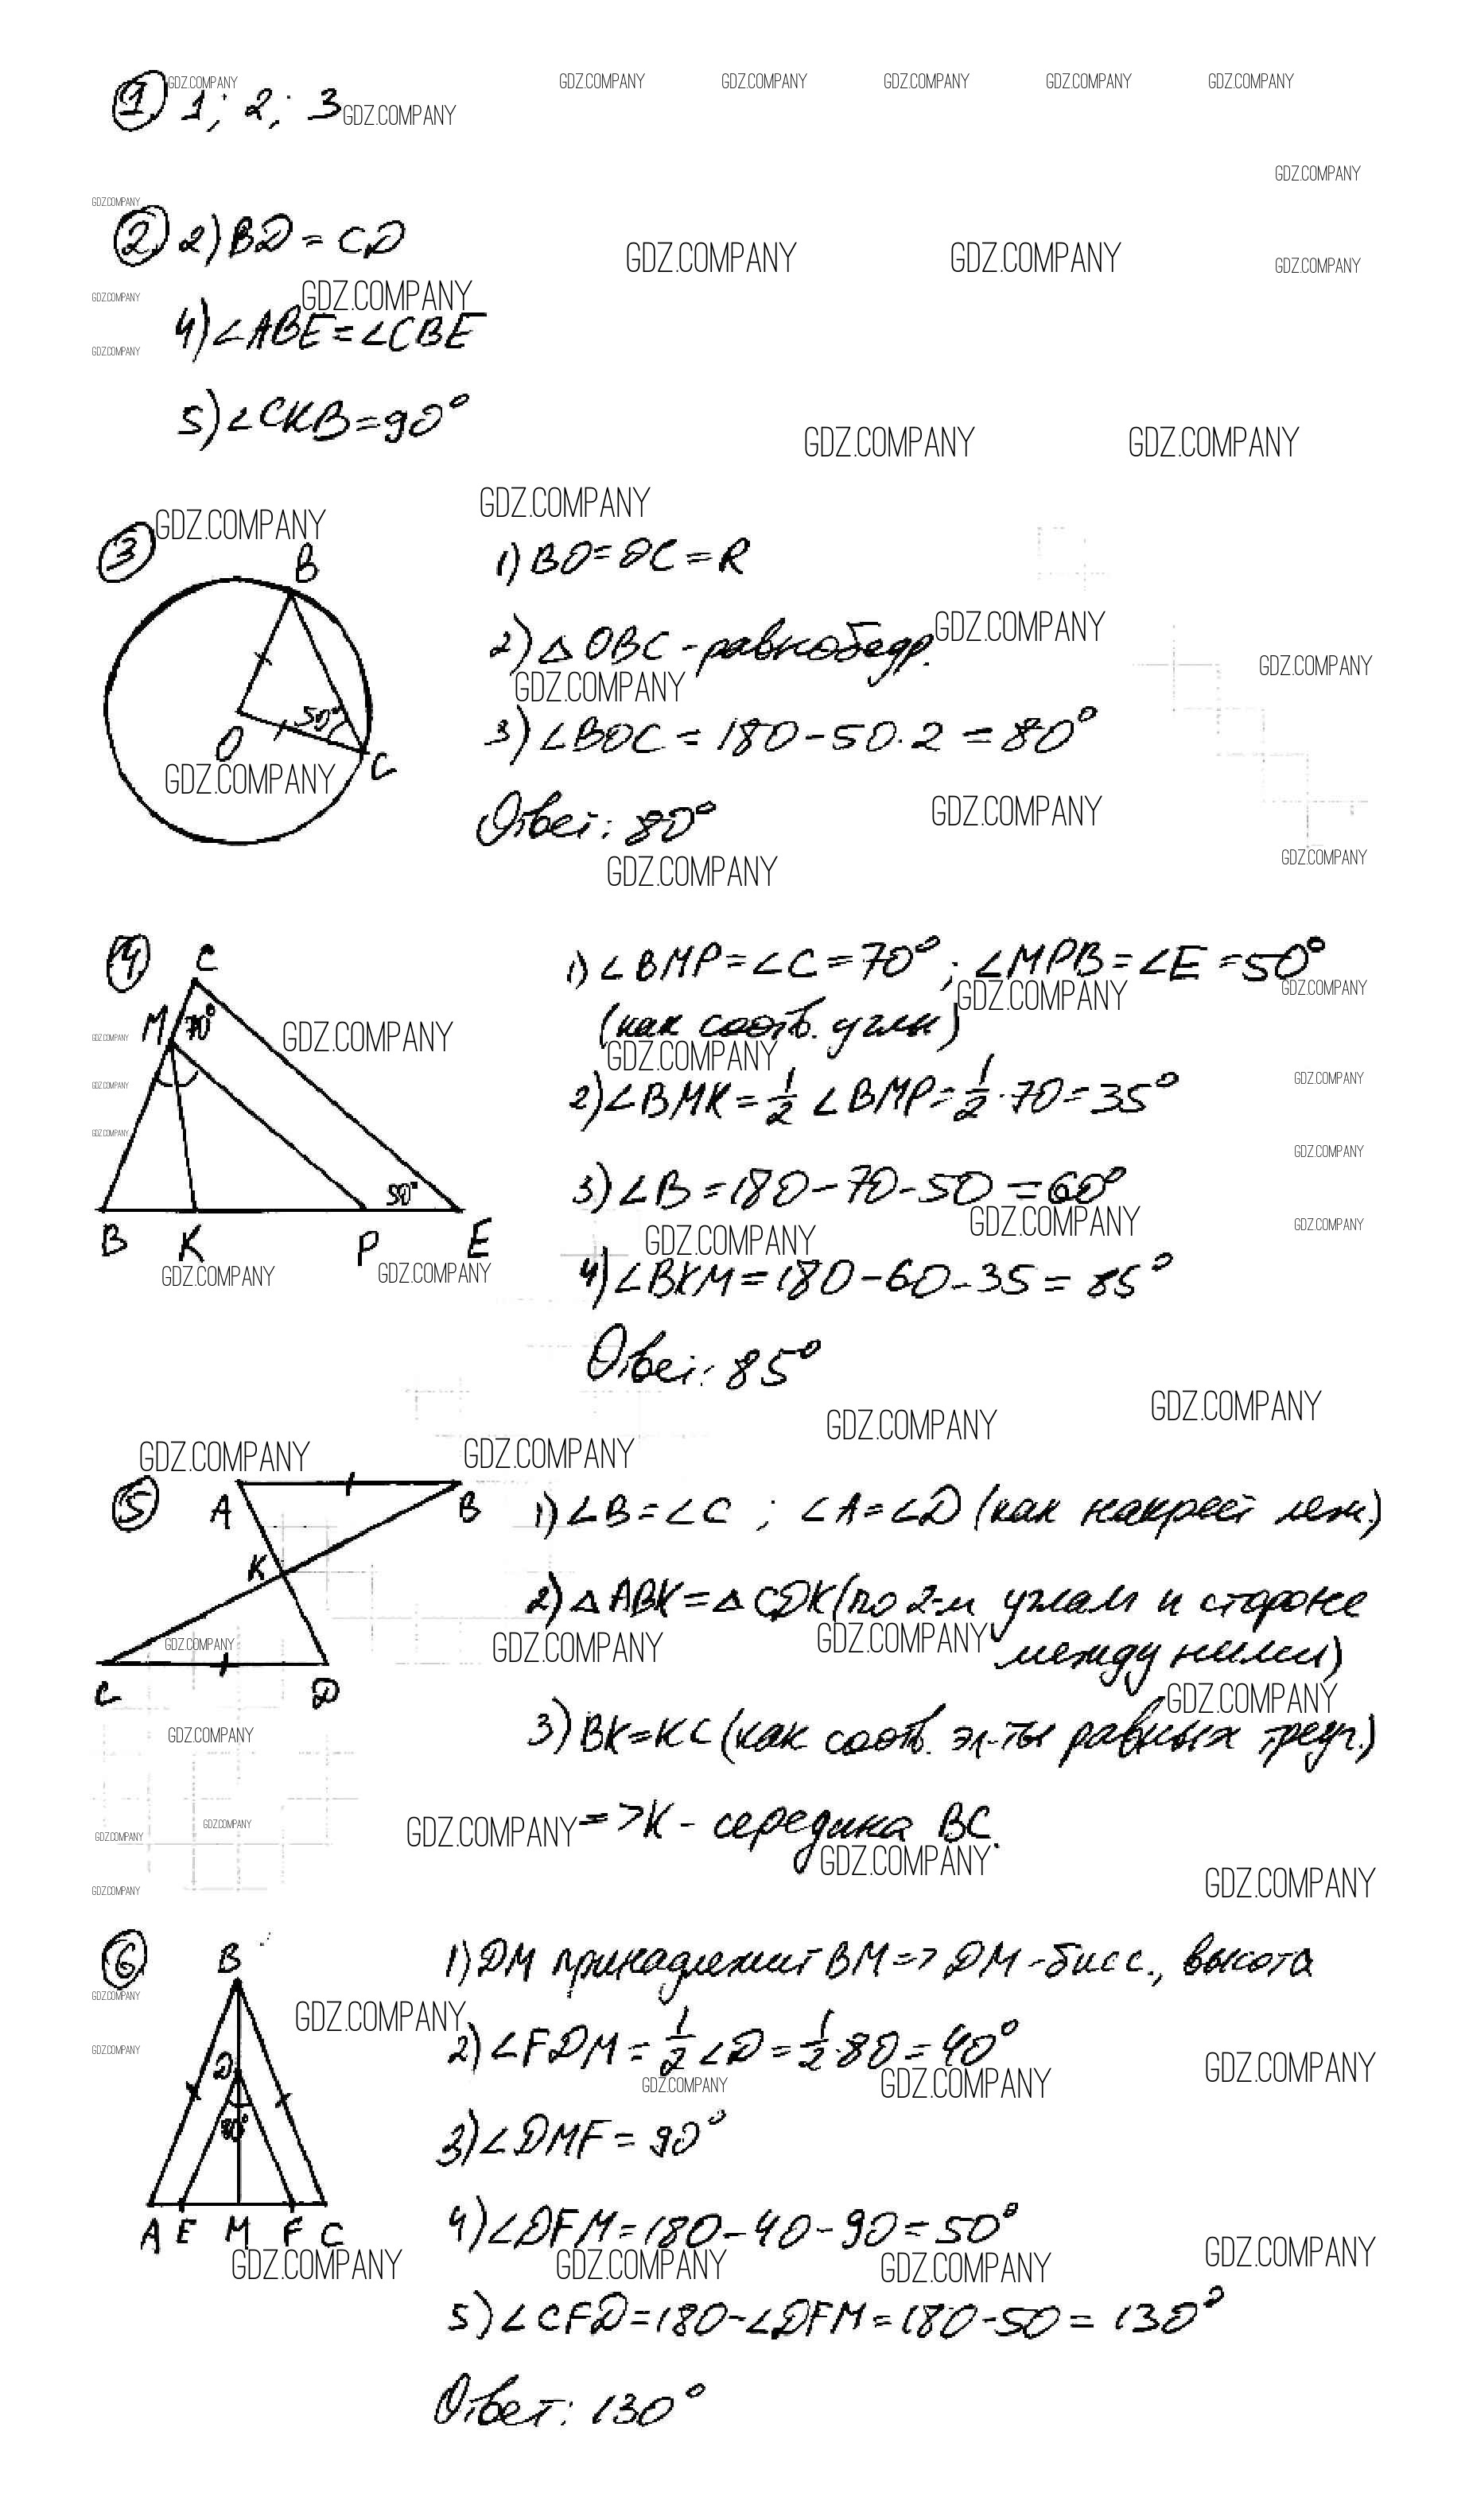 ① 1; 2; 3
② 2) BD = CD
4) ∠ABE = ∠CBE
5) ∠CKB = 90°
③
B
O
50°
C
1) BO = OC = R
2) △ OBC - равнобедр.
3) ∠BOC = 180 - 50·2 = 80°
Ответ: 80°
④
C
M 70°
50°
B K P E
1) ∠BMP = ∠C = 70°; ∠MPB = ∠E = 50°
(как соотв. углы)
2) ∠BMK = 1/2 ∠BMP = 1/2·70 = 35°
3) ∠B = 180 - 70 - 50 = 60°
4) ∠BKM = 180 - 60 - 35 = 85°
Ответ: 85°
⑤
A B
K
C D
1) ∠B = ∠C ; ∠A = ∠D (как накрест леж.)
2) △ ABK = △ CDK (по 2-м углам и стороне
между ними)
3) BK = KC (как соотв. эл-ты равных треуг.)
=> K - середина BC.
⑥
B
D
80°
A E M F C
1) DM принадлежит BM => DM - бисс., высота
2) ∠FDM = 1/2 ∠D = 1/2·80 = 40°
3) ∠DMF = 90°
4) ∠DFM = 180 - 40 - 90 = 50°
5) ∠CFD = 180 - ∠DFM = 180 - 50 = 130°
Ответ: 130°
GDZ.COMPANY